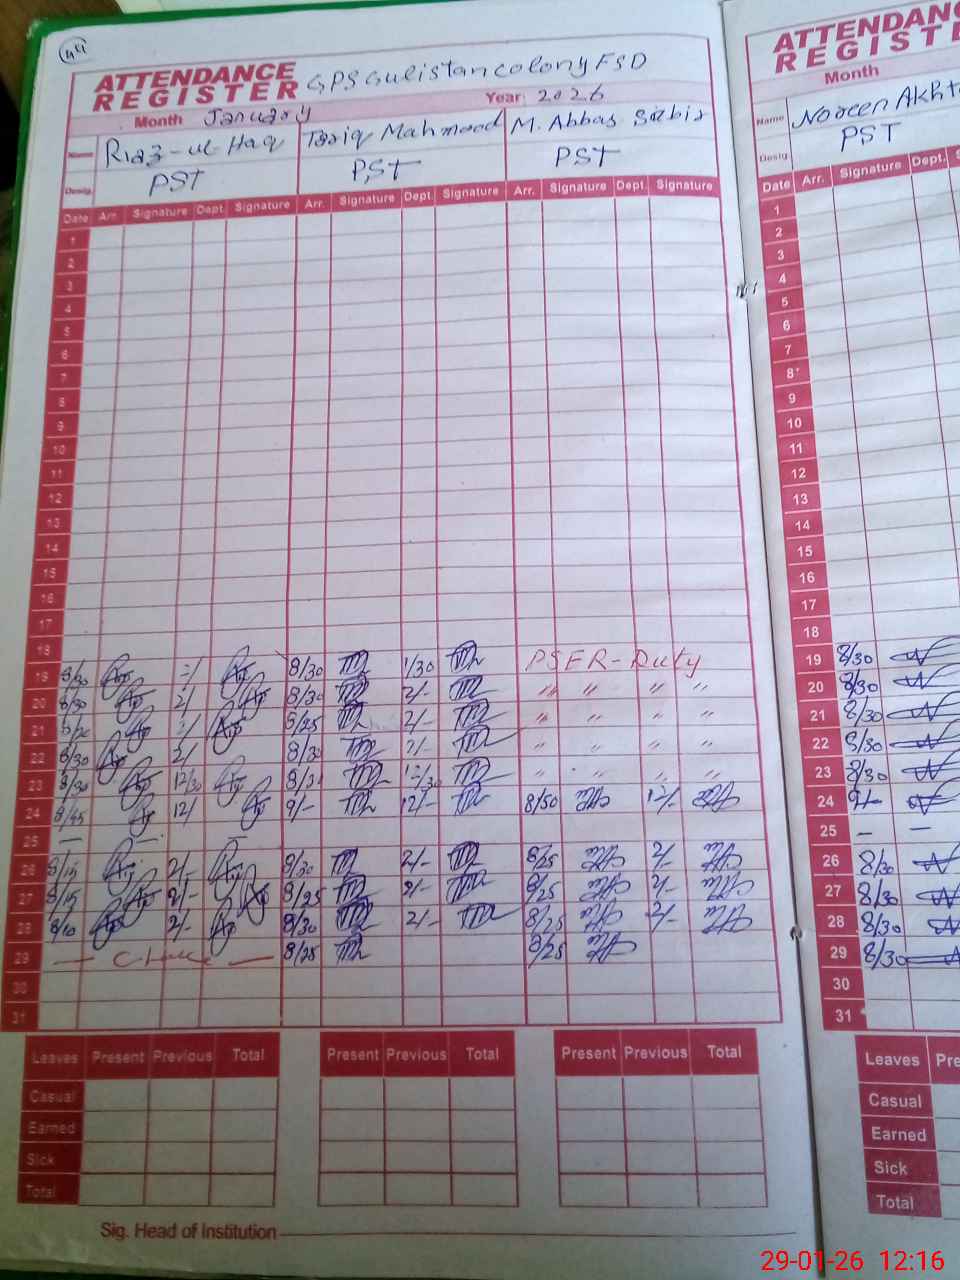 44
ATTENDANCE REGISTER GPS Gulistan colony FSD
Month January Year 2026
Name Riaz-ul Haq Tariq Mahmood M. Abbas Sabir
Desig. PST PST PST
Date Arr. Signature Dept. Signature Arr. Signature Dept. Signature Arr. Signature Dept. Signature
1
2
3
4
5
6
7
8
9
10
11
12
13
14
15
16
17
18
19 8/30 2/ 8/30 1/30 PSER-Duty
20 8/30 2/ 8/30 2/- " " " "
21 2/ 8/25 2/- " " " "
22 8/30 2/ 8/30 2/- " " " "
23 8/30 12/30 8/31 12/30 " " " "
24 8/45 12/ 9/- 12/- 8/50 12/-
25 — — —
26 8/15 2/- 8/30 2/- 8/25 2/-
27 8/15 2/- 8/25 2/- 8/25 2/-
28 8/10 2/- 8/30 2/- 8/25 2/-
29 8/25 8/25
30
31
Leaves Present Previous Total Present Previous Total Present Previous Total
Casual
Earned
Sick
Total
Sig. Head of Institution
ATTENDANC
REGISTE
Month
Name Noreen Akht
Desig. PST
Date Arr. Signature Dept. S
1
2
3
4
5
6
7
8
9
10
11
12
13
14
15
16
17
18
19 8/30
20 8/30
21 8/30
22 8/30
23 8/30
24 9/-
25 — —
26 8/30
27 8/30
28 8/30
29 8/30
30
31
Leaves Pre
Casual
Earned
Sick
Total
29-01-26 12:16